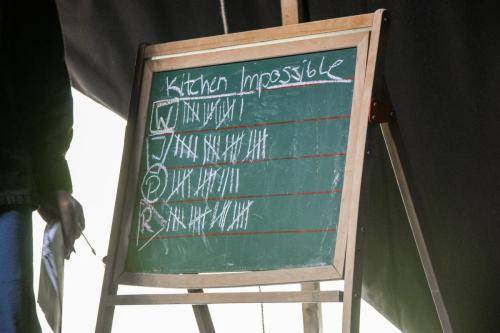 Kitchen Impossible
W
J
P
R